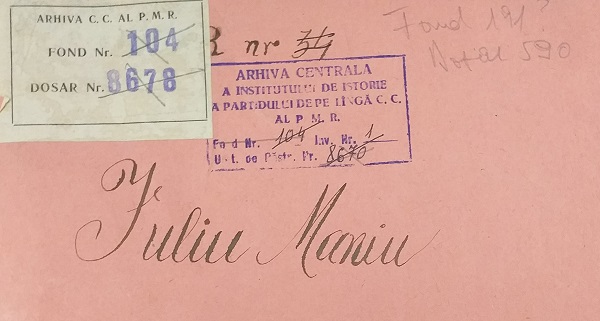 ARHIVA C. C. AL P. M. R.
FOND Nr. 104
DOSAR Nr. 8678
R nr 74
Fond 191
Dosar 590
ARHIVA CENTRALA
A INSTITUTULUI DE ISTORIE
A PARTIDULUI DE PE LÎNGĂ C. C.
AL P. M. R.
Fond Nr. 104 Inv. Nr. 1
Unit. de Păstr. Nr. 8670
Iuliu Maniu